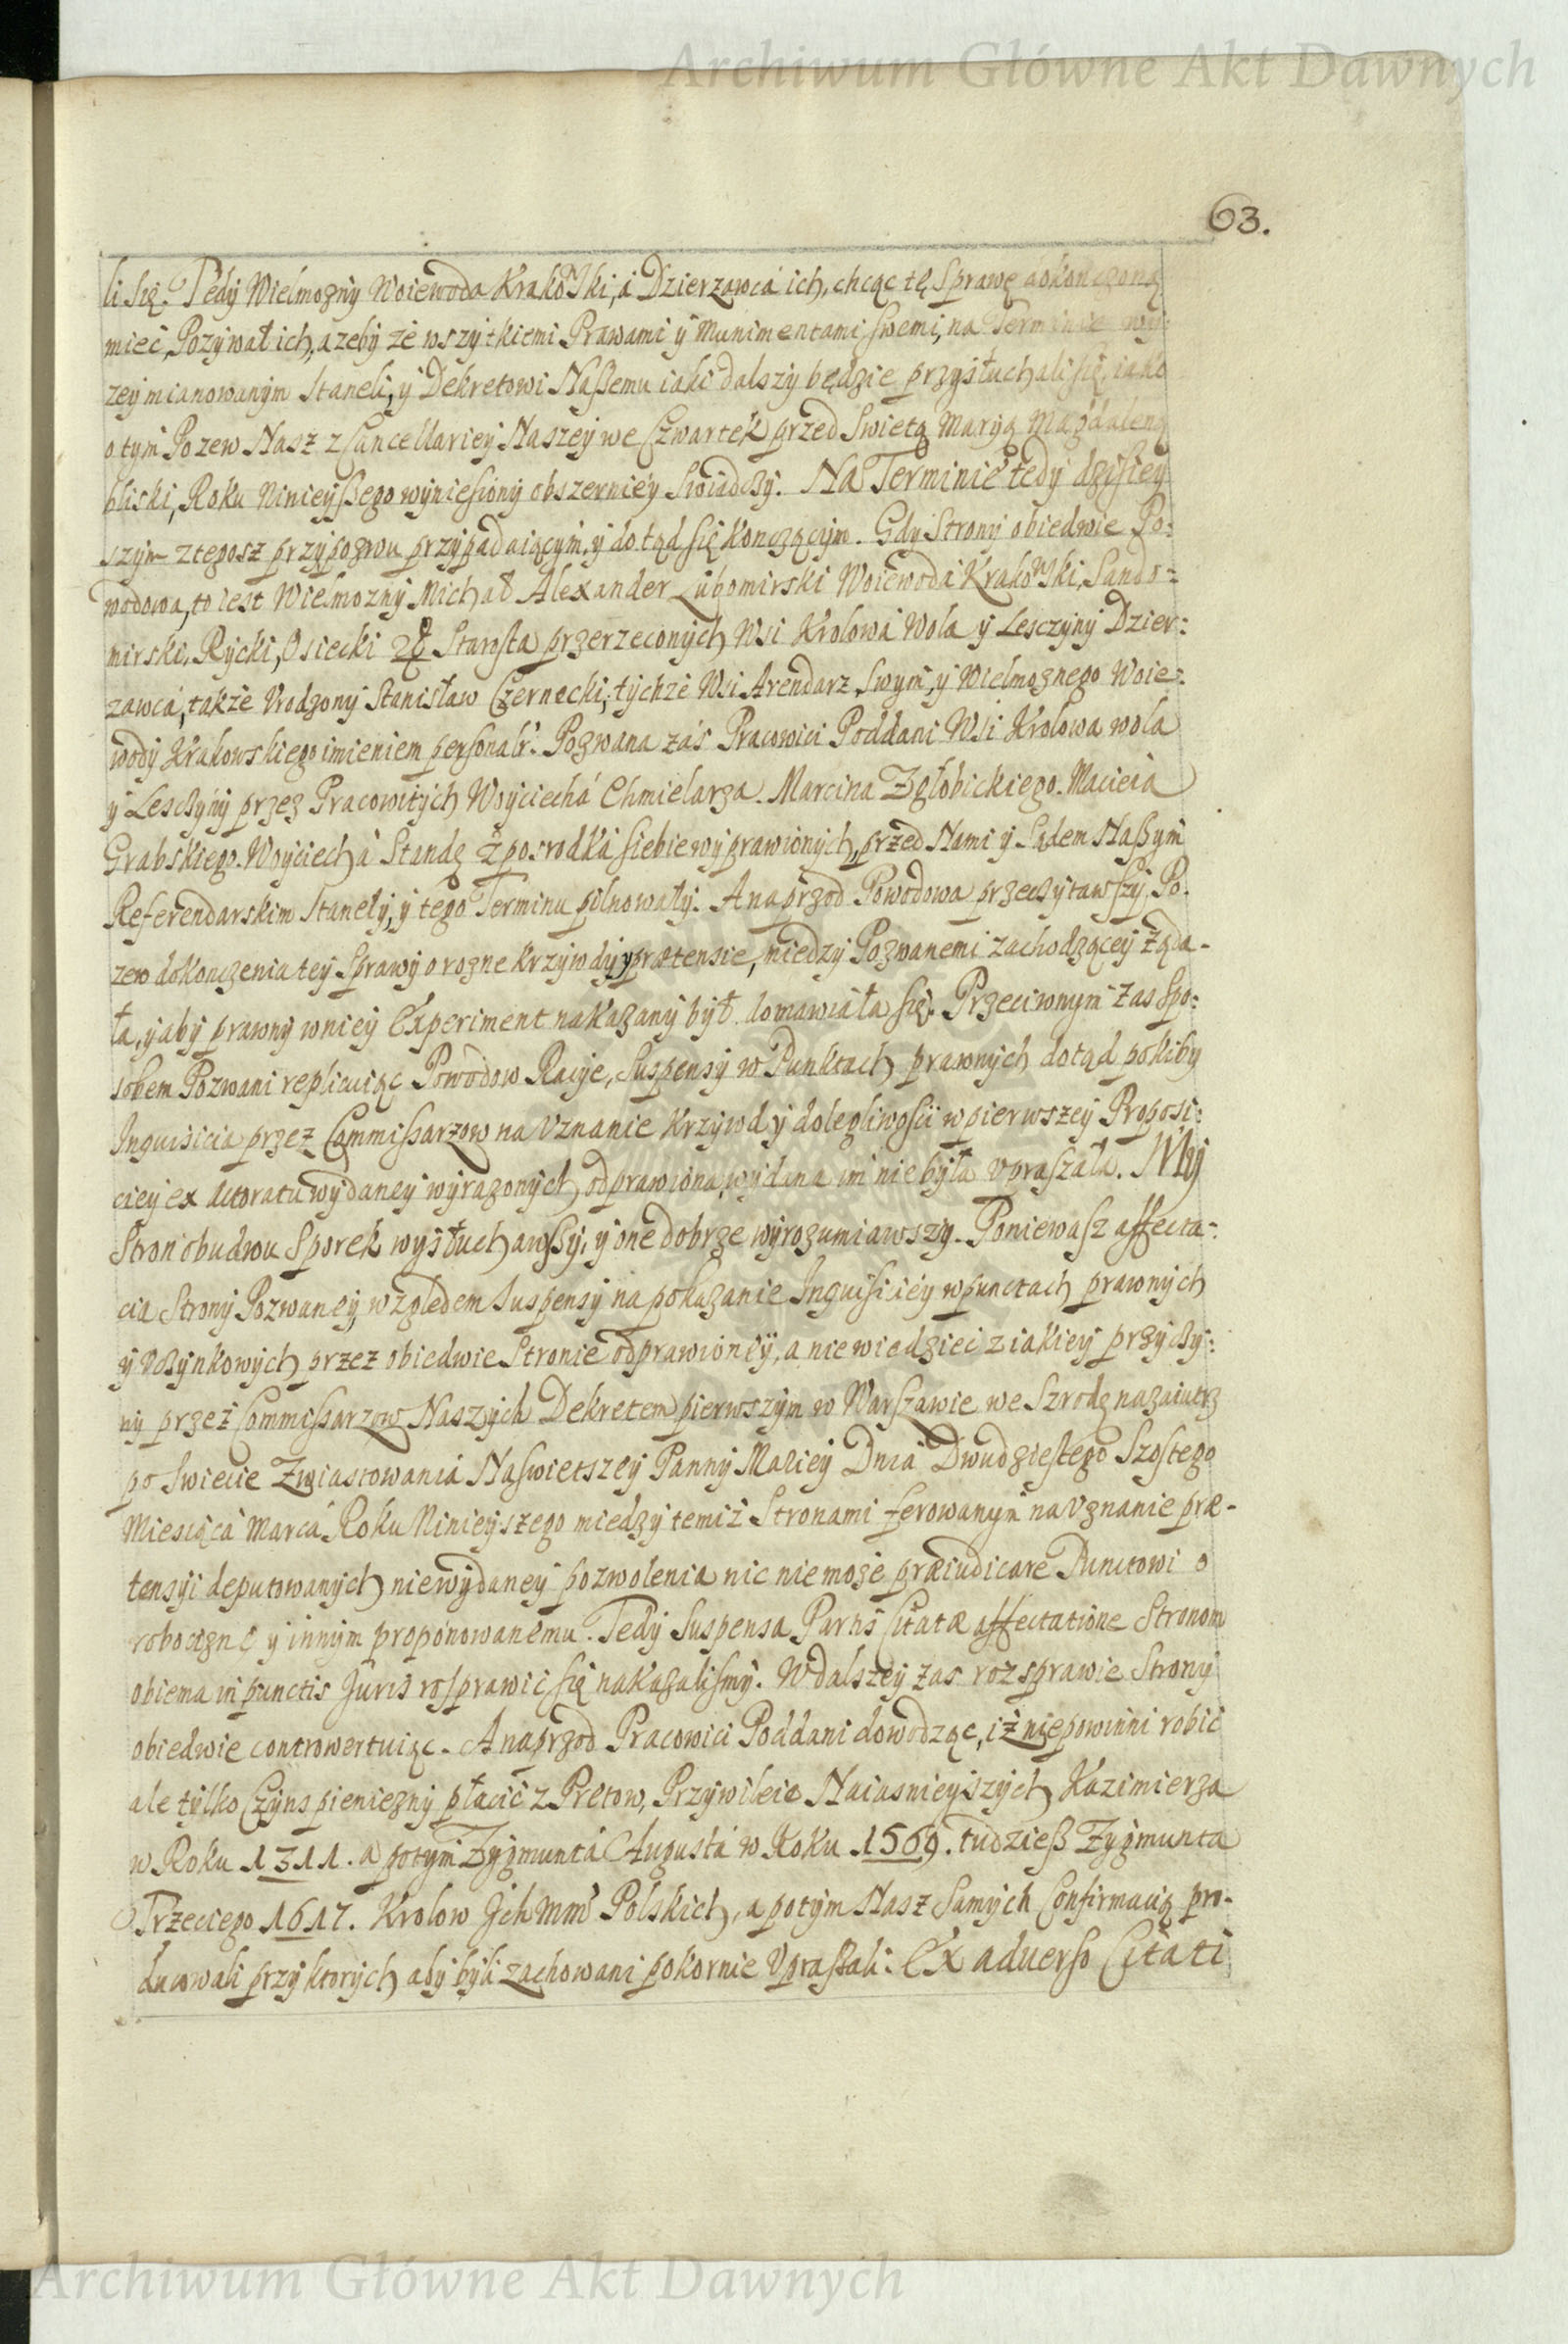 Archiwum Główne Akt Dawnych
63.
li się. Tedy Wielmozny Woiewoda Krakowski, a Dzierzawca ich, chcąc tę Sprawę dokonczoną
mieć, Pozywał ich, azeby ze wszytkiemi Prawami y Munimentami swemi, na Terminie wy:
zey mianowanym Staneli, y Dekretowi Naszemu iaki dalszy będzie przysłuchali się, iako
o tym Pozew Nasz z Cancellariey Naszey we Czwartek przed Swietą Maryą Magdaleną
bliski, Roku Ninieyszego wyniesiony obszerniey Swiadczy. Na Terminie tedy dzisiey
szym z tegosz przypozwu przypadaiącym, y dotąd się konczącym. Gdy Strony obiedwie Po:
wodowa, to iest Wielmozny Michał Alexander Lubomirski Woiewoda Krakowski, Sando:
mirski, Rycki, Osiecki &c Starosta przerzeconych Wsi Krolowa Wola y Lesczyny Dzier:
zawca, także Vrodzony Stanisław Czernecki, tychze Wsi Arendarz Swym, y Wielmoznego Woie:
wody Krakowskiego imieniem personalr. Pozwana zaś Pracowici Poddani Wsi Krolowa wola
y Lesczyny przez Pracowitych Woyciecha Chmielarza. Marcina Zgłobickiego. Macieia
Grabskiego. Woyciecha Standę z posrodka siebie wyprawionych, przed Nami y Sądem Naszym
Referendarskim Stanęły, y tego Terminu pilnowały. A naprzod Powodowa przeczytawszy Po.
zew dokonczenia tey Sprawy o rozne krzywdy y prætensie, miedzy Pozwanemi zachodzącey żąda-
ła, y aby prawny w niey Experiment nakazany był domawiała się. Przeciwnym zas spo:
sobem Pozwani replicuiąc Powodow Racye, Suspensy w Punktach prawnych dotąd pokiby
Inquisicia przez Commissarzow na Vznanie Krzywd y dolegliwości w pierwszey Proposi:
ciey ex Actoratu wydaney wyrazonych, odprawiona, wydana im nie była vpraszała. My
Stron obudwu Sporek wysłuchawszy, y one dobrze wyrozumiawszy. Poniewasz affecta:
cia Strony Pozwaney, względem Suspensy na pokazanie Inquisiciey w punctach prawnych
y Vczynkowych przez obiedwie Stronie odprawioney, a nie wiedzieć z iakiey przyczy:
ny przez Commissarzow Naszych Dekretem pierwszym w Warszawie we Szrodę nazaiutrz
po Swiecie Zwiastowania Naswietszey Panny Mariey Dnia Dwudziestego Szostego
Miesiąca Marca Roku Ninieyszego miedzy temiż Stronami ferowanym na Vznanie præ-
tensyi deputowanych niewydaney pozwolenia nic nie może præiudicare Punctowi o
robociznę y innym proponowanemu. Tedy Suspensa Partis Citatæ affectatione Stronom
obiema in punctis Juris rosprawić się nakazalismy. W dalszey zas rozsprawie Strony
obiedwie controwertuiąc. A naprzod Pracowici Poddani dowodząc, iż nie powinni robić
ale tylko Czyns pieniezny płacić z Prętow, Przywileie Naiasnieyszych Kazimierza
w Roku 1311. a potym Zygmunta Augusta w Roku 1569. tudziesz Zygmunta
Trzeciego 1617. Krolow Jch Mm Polskich, a potym Nasz Samych Confirmacią pro-
ducowali przy ktorych aby byli zachowani pokornie Vpraszali. Ex aduerso Citati
Archiwum Główne Akt Dawnych